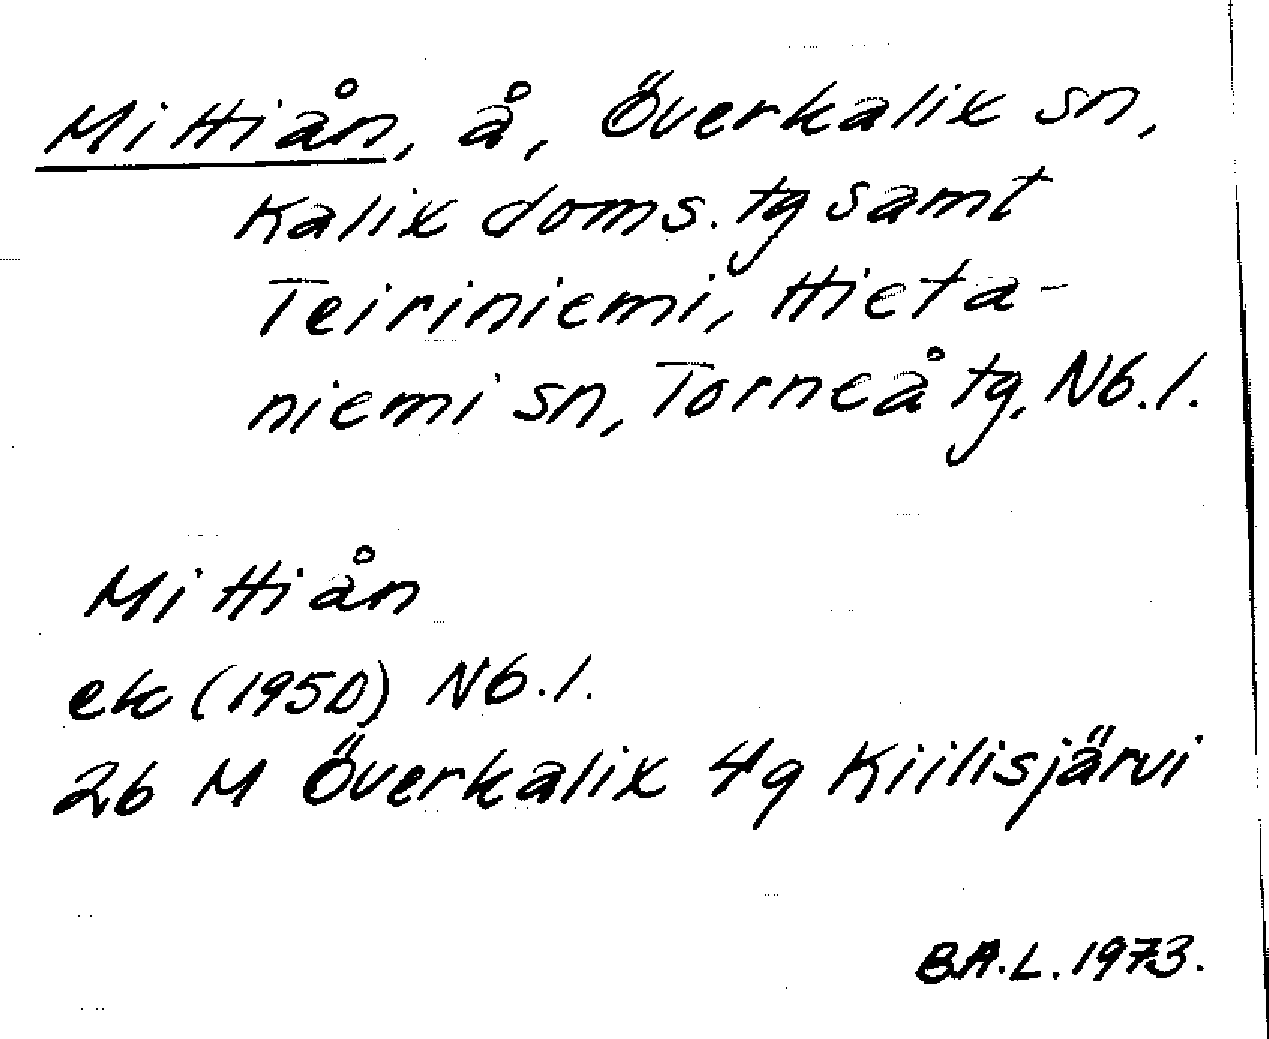 Mittiån, å, Överkalix sn,
Kalix doms. tg samt
Teiriniemi, Hieta-
niemi sn, Torneå tg, Nb.l.
Mittiån
ek (1950) Nb.l.
26 M Överkalix 4g Kiilisjärvi
B.A.L. 1973.